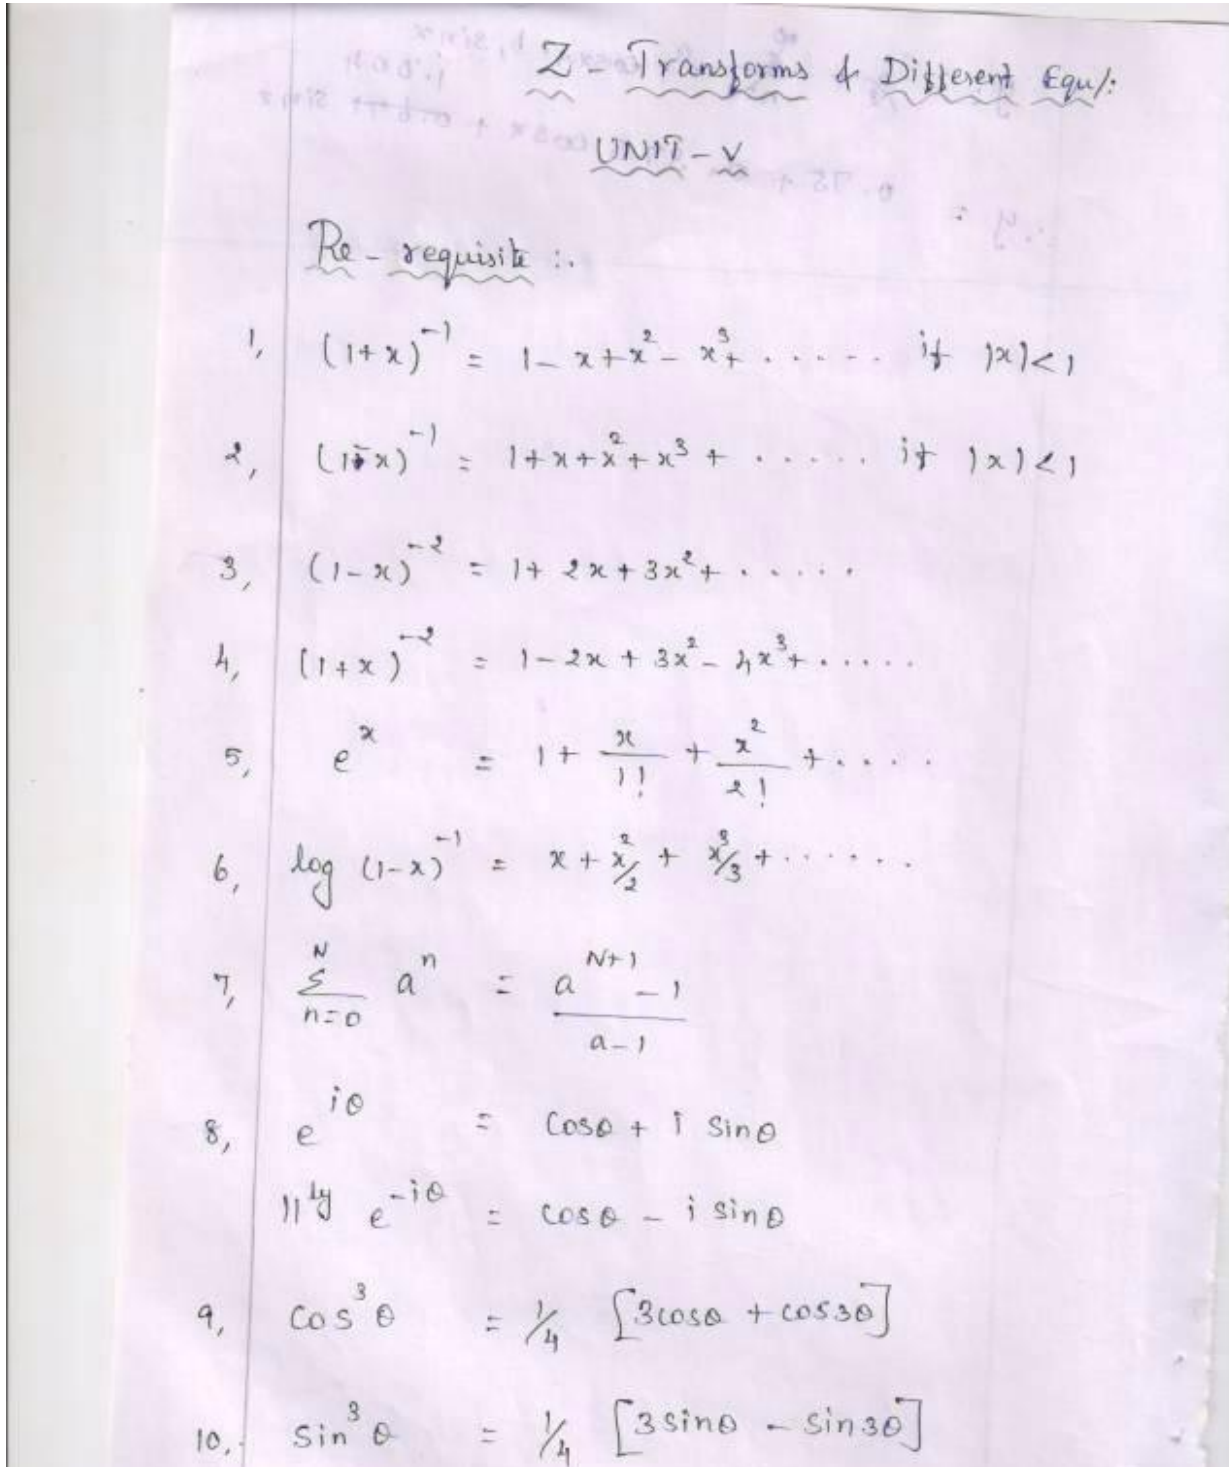 Z - Transforms & Different Equ/:
UNIT - V
Pre - requisite :.
1, (1+x)⁻¹ = 1 - x + x² - x³ + ...... if |x| < 1
2, (1-x)⁻¹ = 1 + x + x² + x³ + ...... if |x| < 1
3, (1-x)⁻² = 1 + 2x + 3x² + .....
4, (1+x)⁻² = 1 - 2x + 3x² - 4x³ + .....
5, eˣ = 1 + x/1! + x²/2! + ....
6, log (1-x)⁻¹ = x + x²/2 + x³/3 + ......
7, N Σ n=0 aⁿ = (a^(N+1) - 1)/(a-1)
8, e^(iθ) = cosθ + i sinθ
||ly e^(-iθ) = cosθ - i sinθ
9, cos³θ = 1/4 [3cosθ + cos3θ]
10, sin³θ = 1/4 [3sinθ - sin3θ]